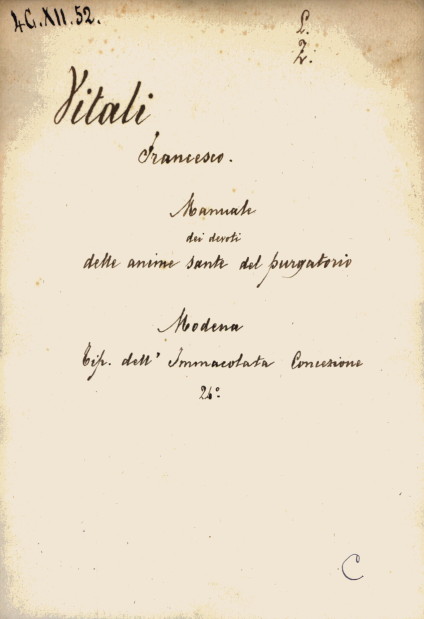 4G.XII.52.
L.
Z.
Vitali
Francesco.
Manuale
dei devoti
delle anime sante del purgatorio
Modena
Tip. dell' Immacolata Concezione
24°.
C